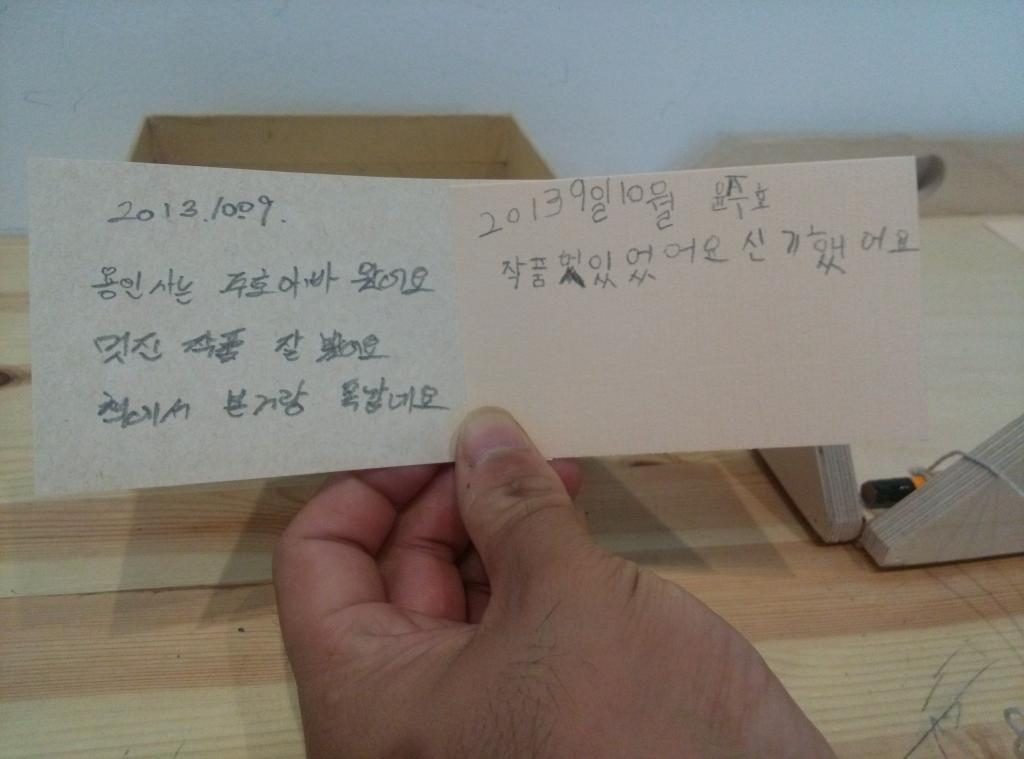 2013.10.09.
용인사는 주호아빠 왔어요
멋진 작품 잘 봤어요
책에서 본거랑 똑같네요
2013 9일10월 윤주호
작품 멋있었어요 신기했어요